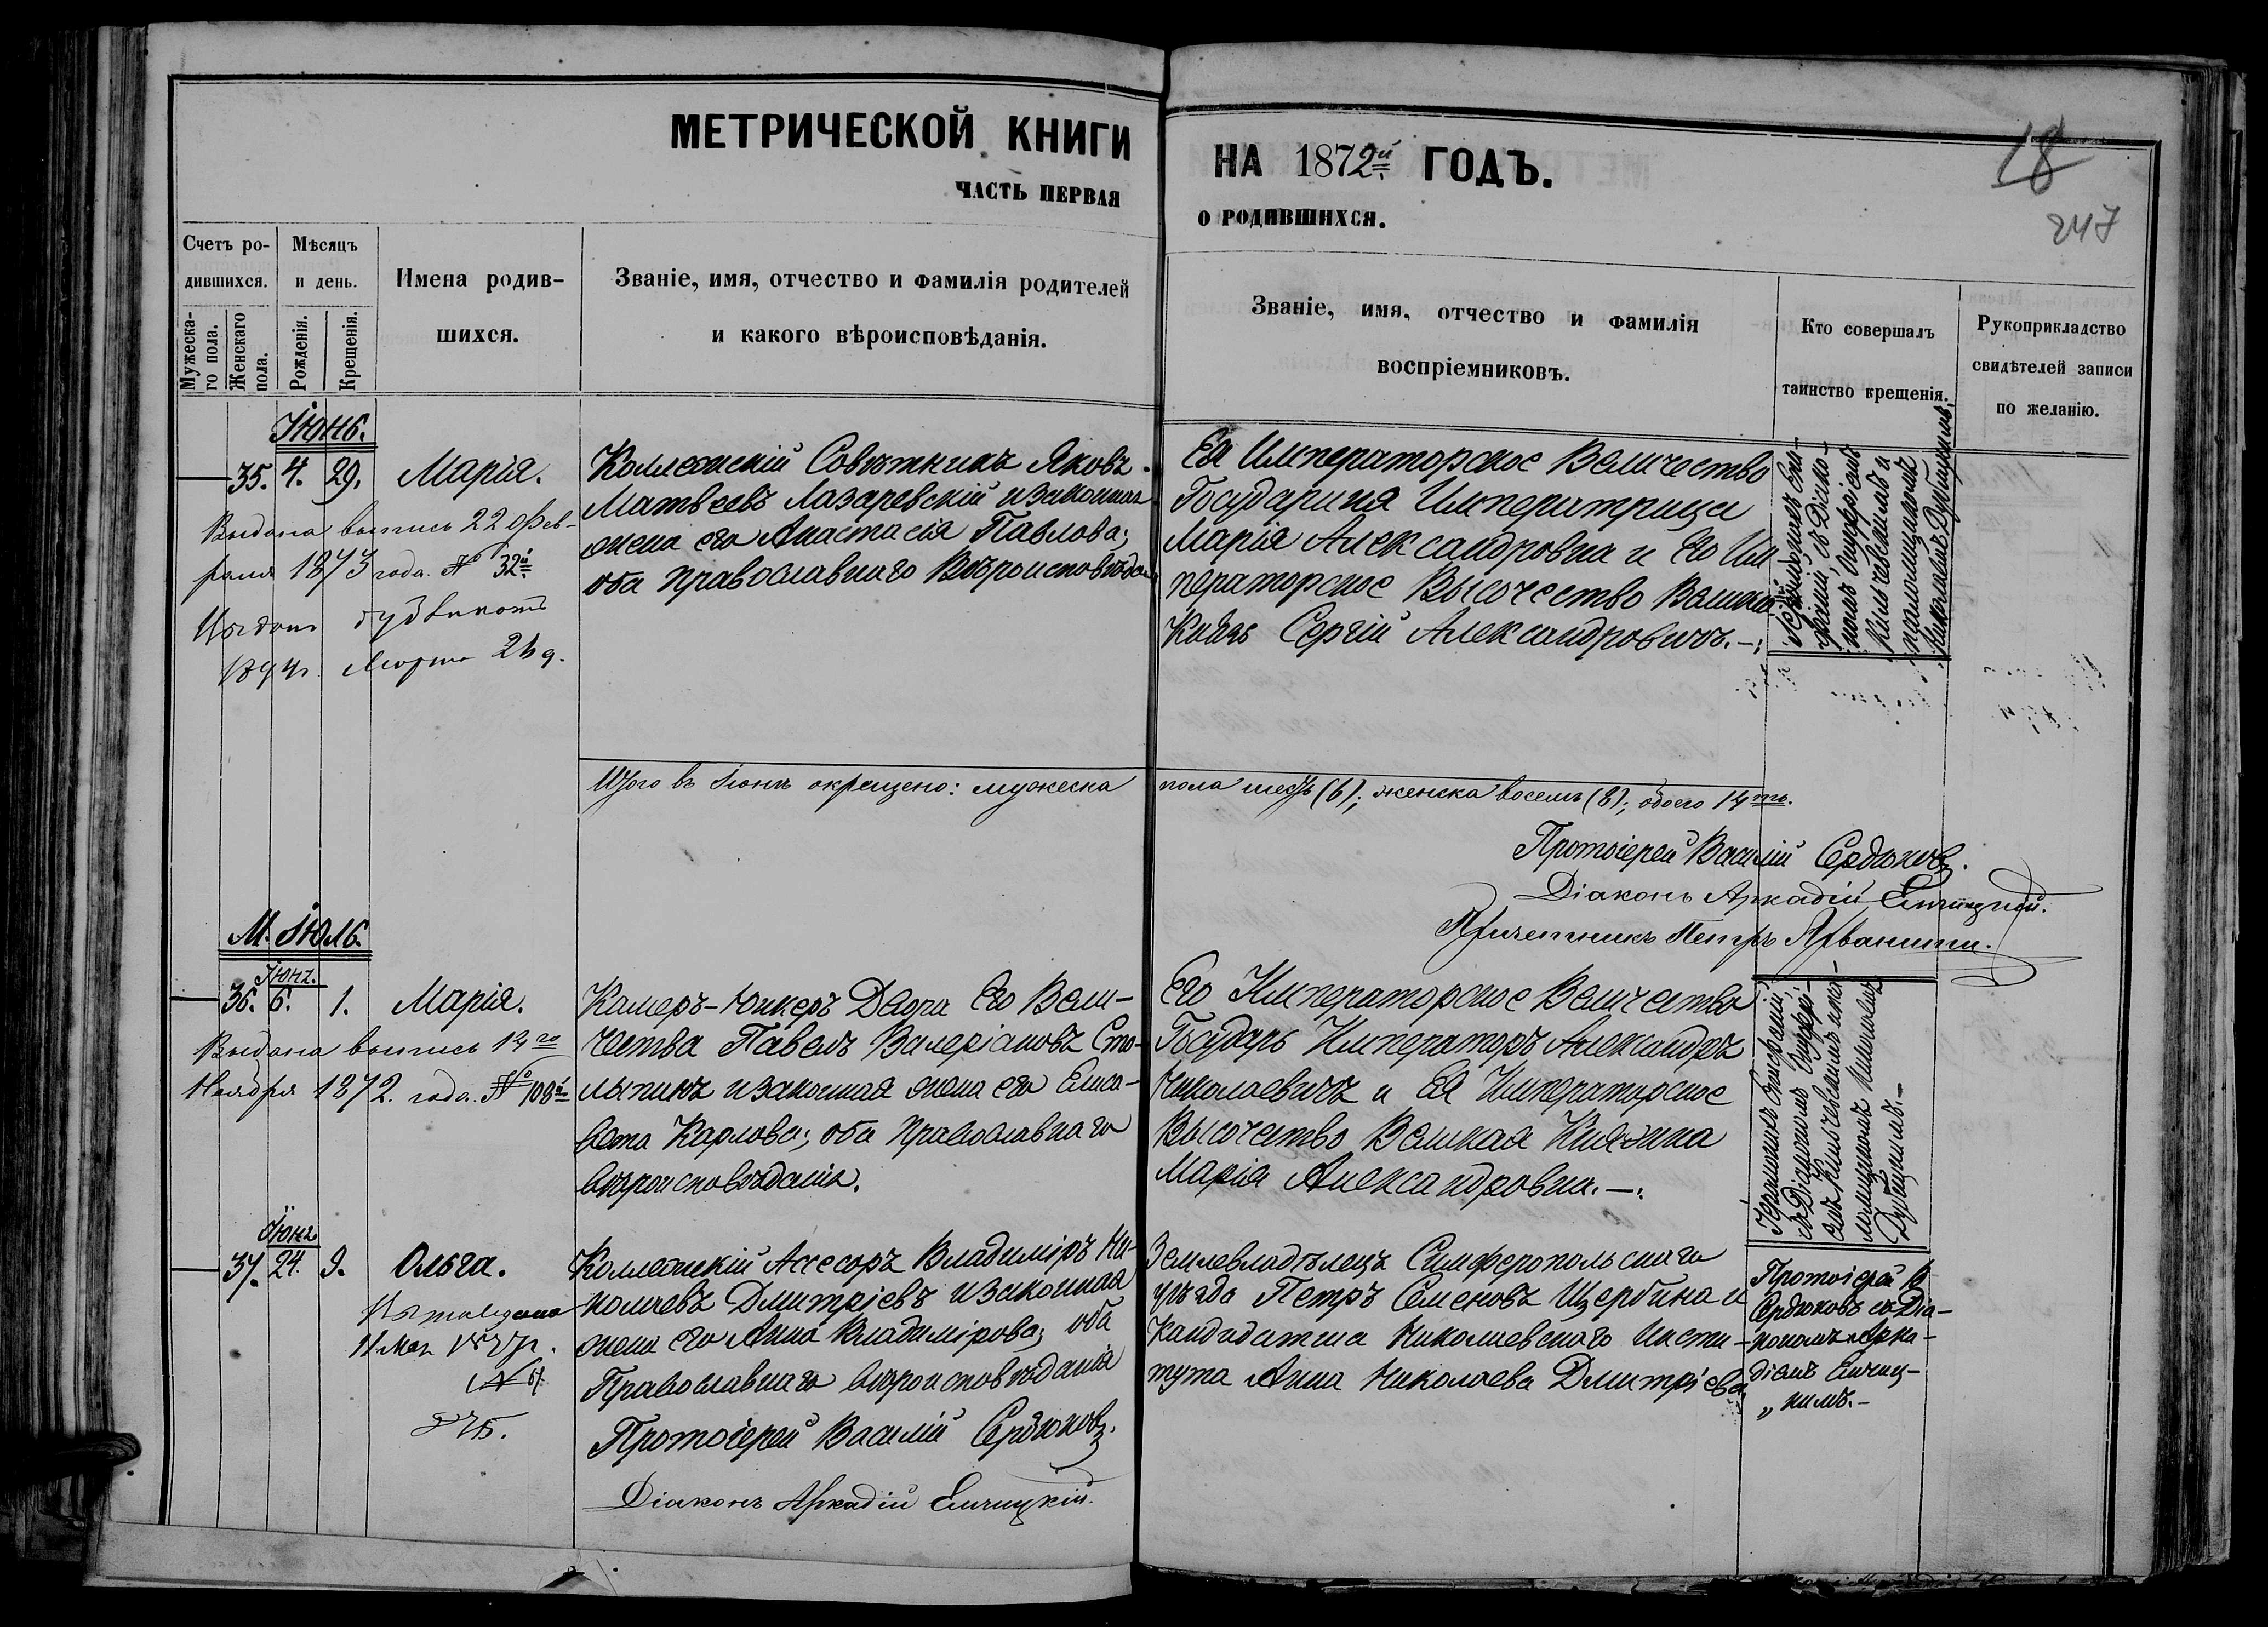 МЕТРИЧЕСКОЙ КНИГИ
ЧАСТЬ ПЕРВАЯ
НА 1872й ГОДЪ.
О РОДИВШИХСЯ.
18
247
Счетъ ро-
дившихся.
Мужеска-
го пола.
Женскаго
пола.
Мѣсяцъ
и день.
Рожденія.
Крещенія.
Имена родив-
шихся.
Званіе, имя, отчество и фамилія родителей
и какого вѣроисповѣданія.
Званіе, имя, отчество и фамилія
воспріемниковъ.
Кто совершалъ
таинство крещенія.
Рукоприкладство
свидѣтелей записи
по желанію.
Іюнь.
35. 4. 29. Марія.
Выдана выпись 22 Фев-
раля 1873 года. № 32й
1894г. Марта
Коллежскій Совѣтникъ Яковъ
Матвѣевъ Лазаревскій и законная
жена его Анастасія Павлова;
оба православнаго Вѣроисповѣдан.
Ея Императорское Величество
Государыня Императрица
Марія Александровна и Его Им
ператорское Высочество Великій
Князь Сергій Александровичъ.—
Іеромонахъ Епи-
фаній, съ Діако-
номъ
и
псаломщикомъ
Николаемъ
Итого въ Іюнѣ окрещено: мужеска пола шесть (6); женска восемь (8); обоего 14ть.
Протоіерей Василій Сердюковъ.
Діаконъ Аркадій Енчицкій.
Причетникъ Петръ Арванити.
М. Іюль.
Іюнь.
36. 6. 1. Марія.
Выдана выпись 14го
Ноября 1872. года. № 108й
Камеръ-Юнкеръ Двора Его Вели-
чества Павелъ Валеріановъ Сто-
лыпинъ и законная жена его Елиса-
вета Карлова; оба православнаго
вѣроисповѣданія.
Его Императорское Величество
Государь Императоръ Александръ
Николаевичъ и Ея Императорское
Высочество Великая Княжна
Марія Александровна.—
Іеромонахъ Епифаній,
съ Діакономъ
Іюнь
37. 24. 9. Ольга.
Коллежскій Ассесоръ Владиміръ Ни-
колаевъ Дмитріевъ и законная
жена его Анна Владимірова; оба
Православнаго вѣроисповѣданія
Землевладѣлецъ Симферопольскаго
уѣзда Петръ Семеновъ Щербина и
Кандидатша Николаевскаго Инсти-
тута Анна Николаева Дмитріева
Протоіерей В.
Сердюковъ съ Діа-
кономъ Арка-
діемъ Енчиц-
„кимъ.—
Протоіерей Василій Сердюковъ.
Діаконъ Аркадій Енчицкій.